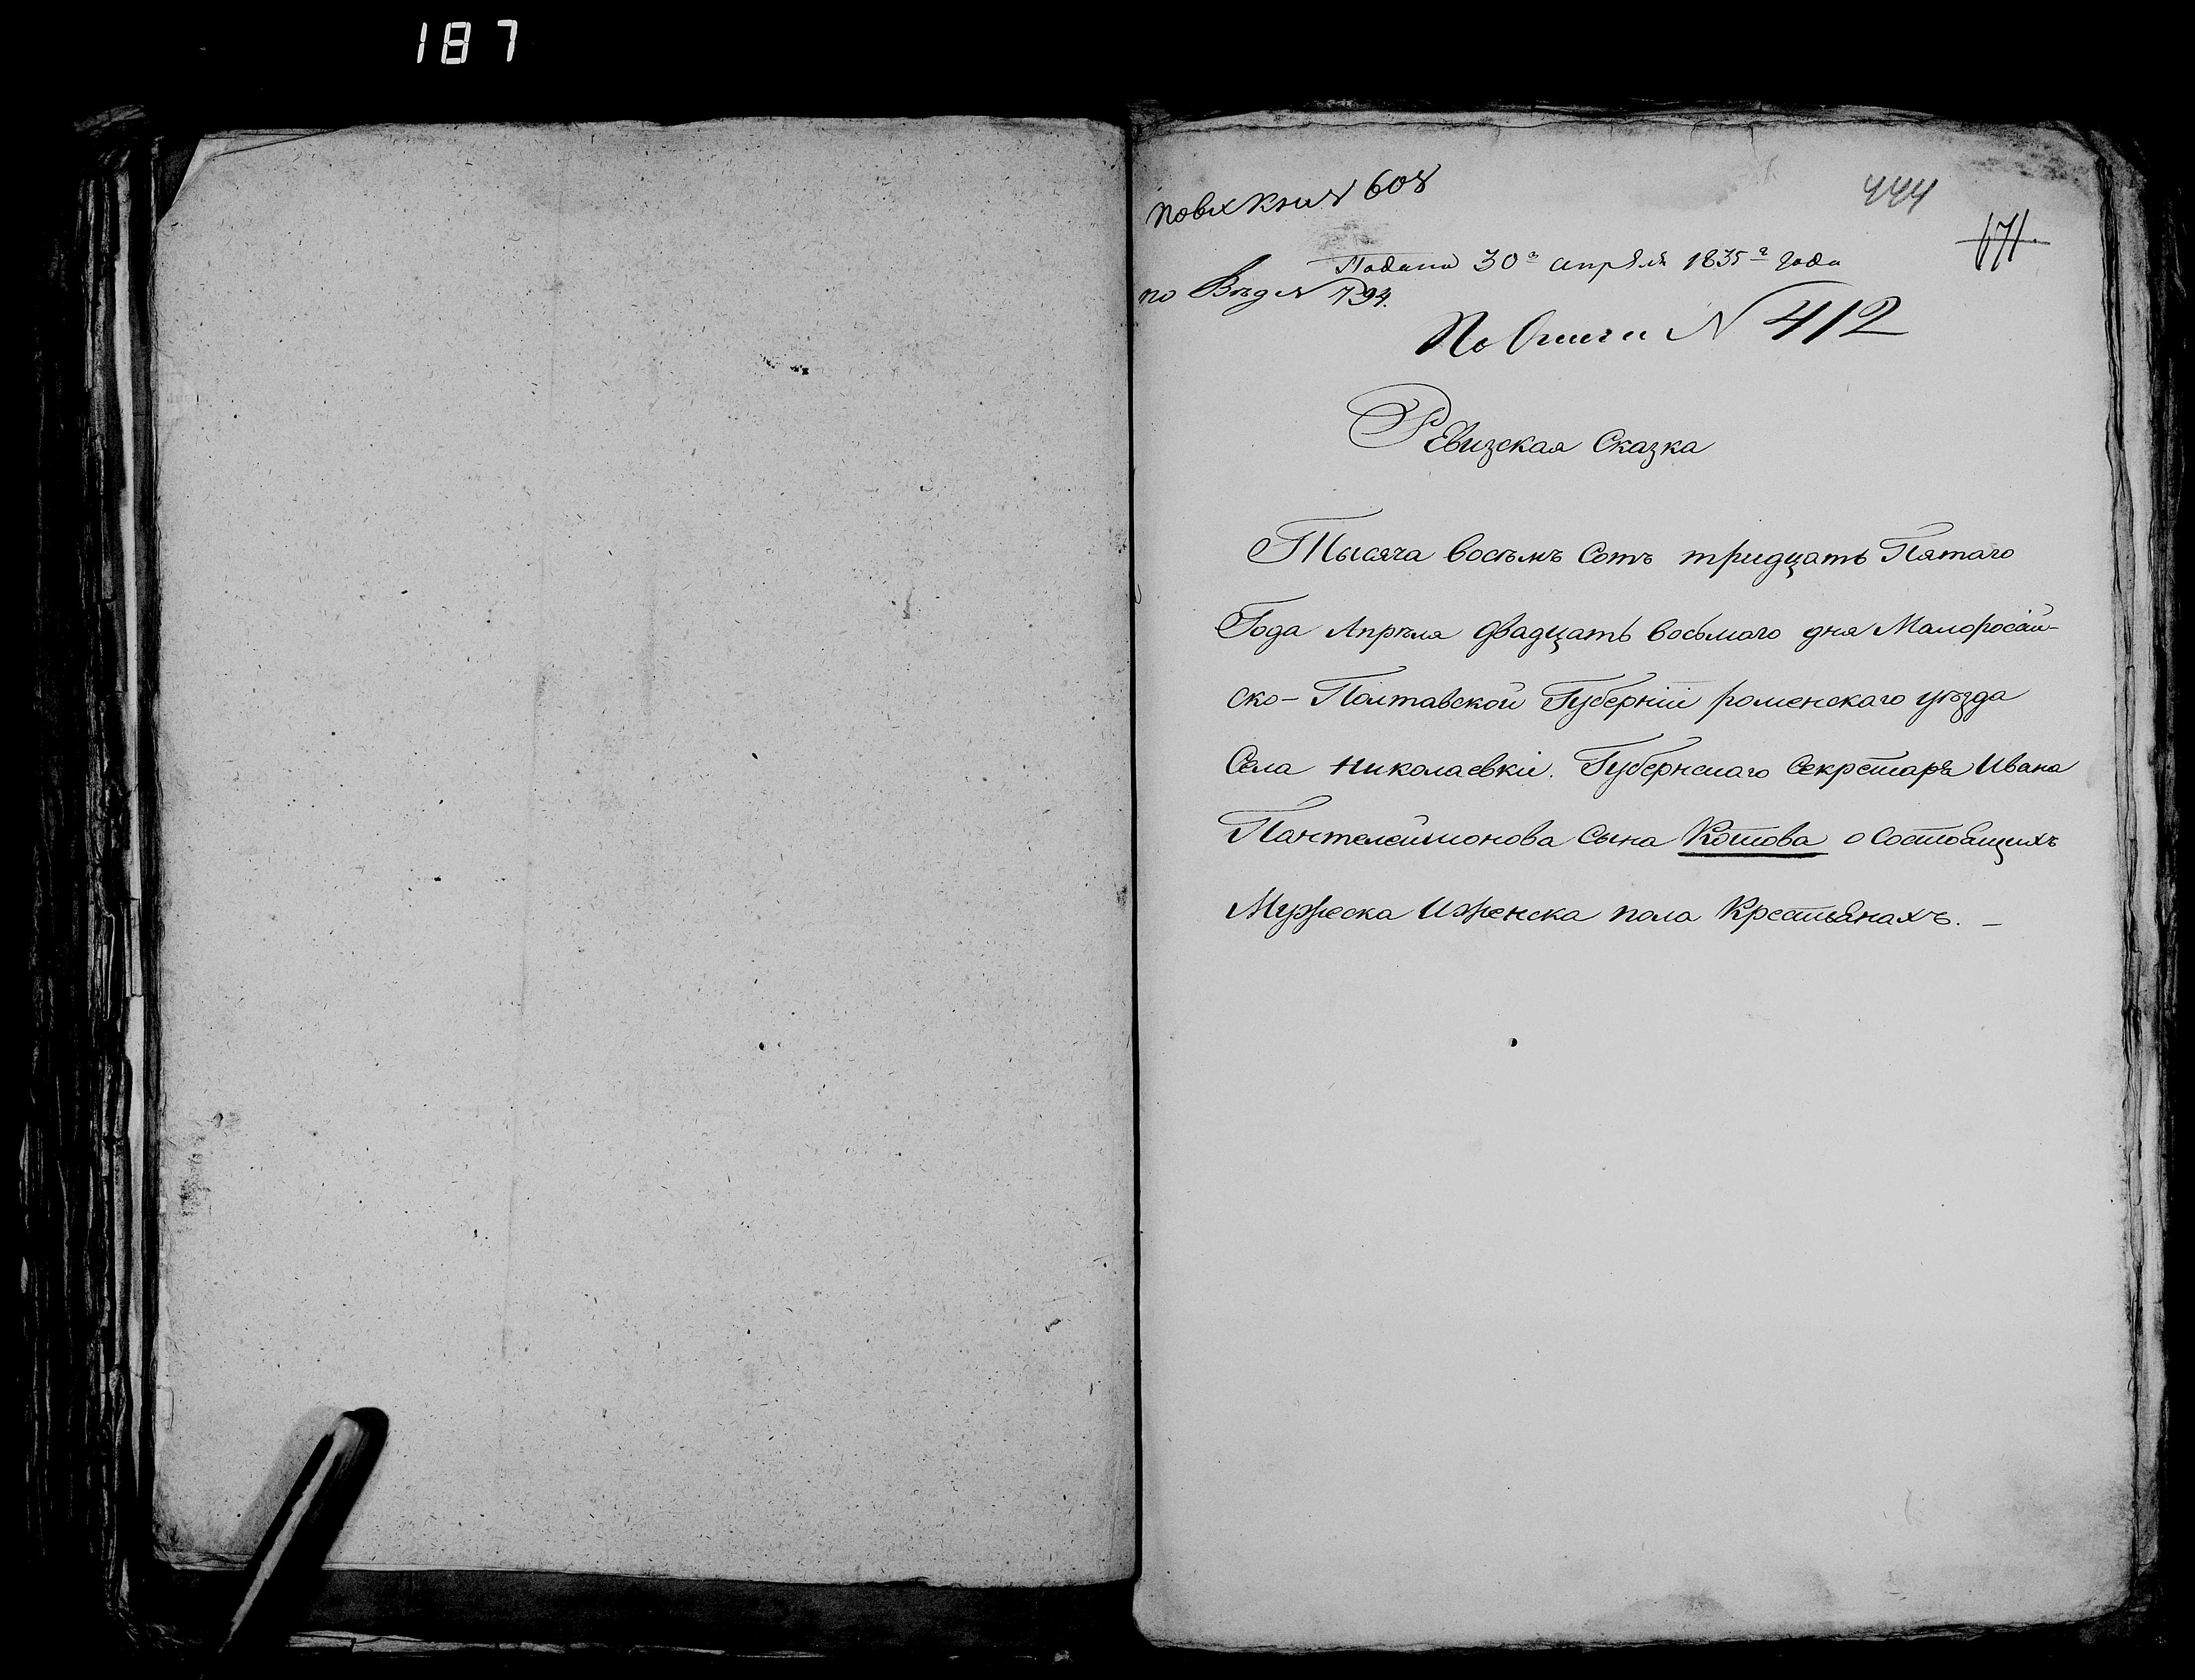 187
по вх книг 608
444
171.
Подана 30го апреля 1835го года
по Вѣд N 794.
По Книги N 412
Ревизская Сказка
Тысяча восъмъ Сотъ тридцать Пятаго
Года Апрѣля двадцать восьмаго дня Малоросій-
ско-Полтавской Губерніи роменскаго уѣзда
Села Николаевки. Губернскаго Секретаря Ивана
Пантелеймонова Сына Котова о Состоящихъ
Мужеска И женска пола Крестьянахъ. —